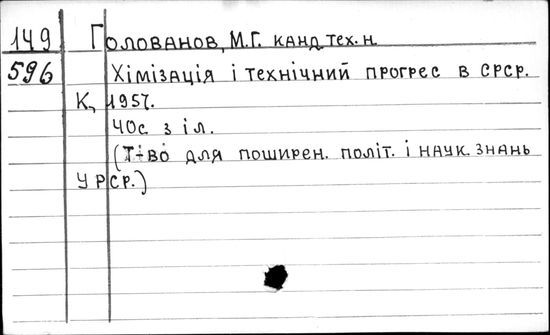 149 Голованов, М.Г. канд тех. н.
596 Хімізація і технічний прогрес в СРСР.
К, 1957.
40с. з іл.
(Т-во для поширен. політ. і наук. знань
УРСР.)